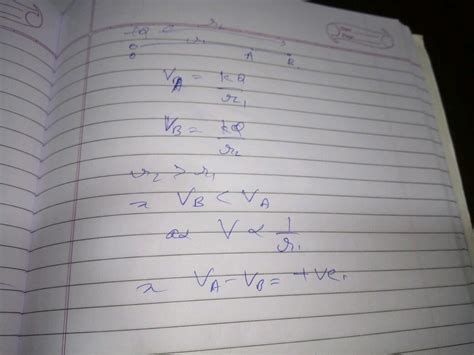 +Q r₂
r₁
A B
V_A = kQ / r₁
V_B = kQ / r₂
r₂ > r₁
⇒ V_B < V_A
as V ∝ 1 / r₁
⇒ V_A - V_B = +ve.